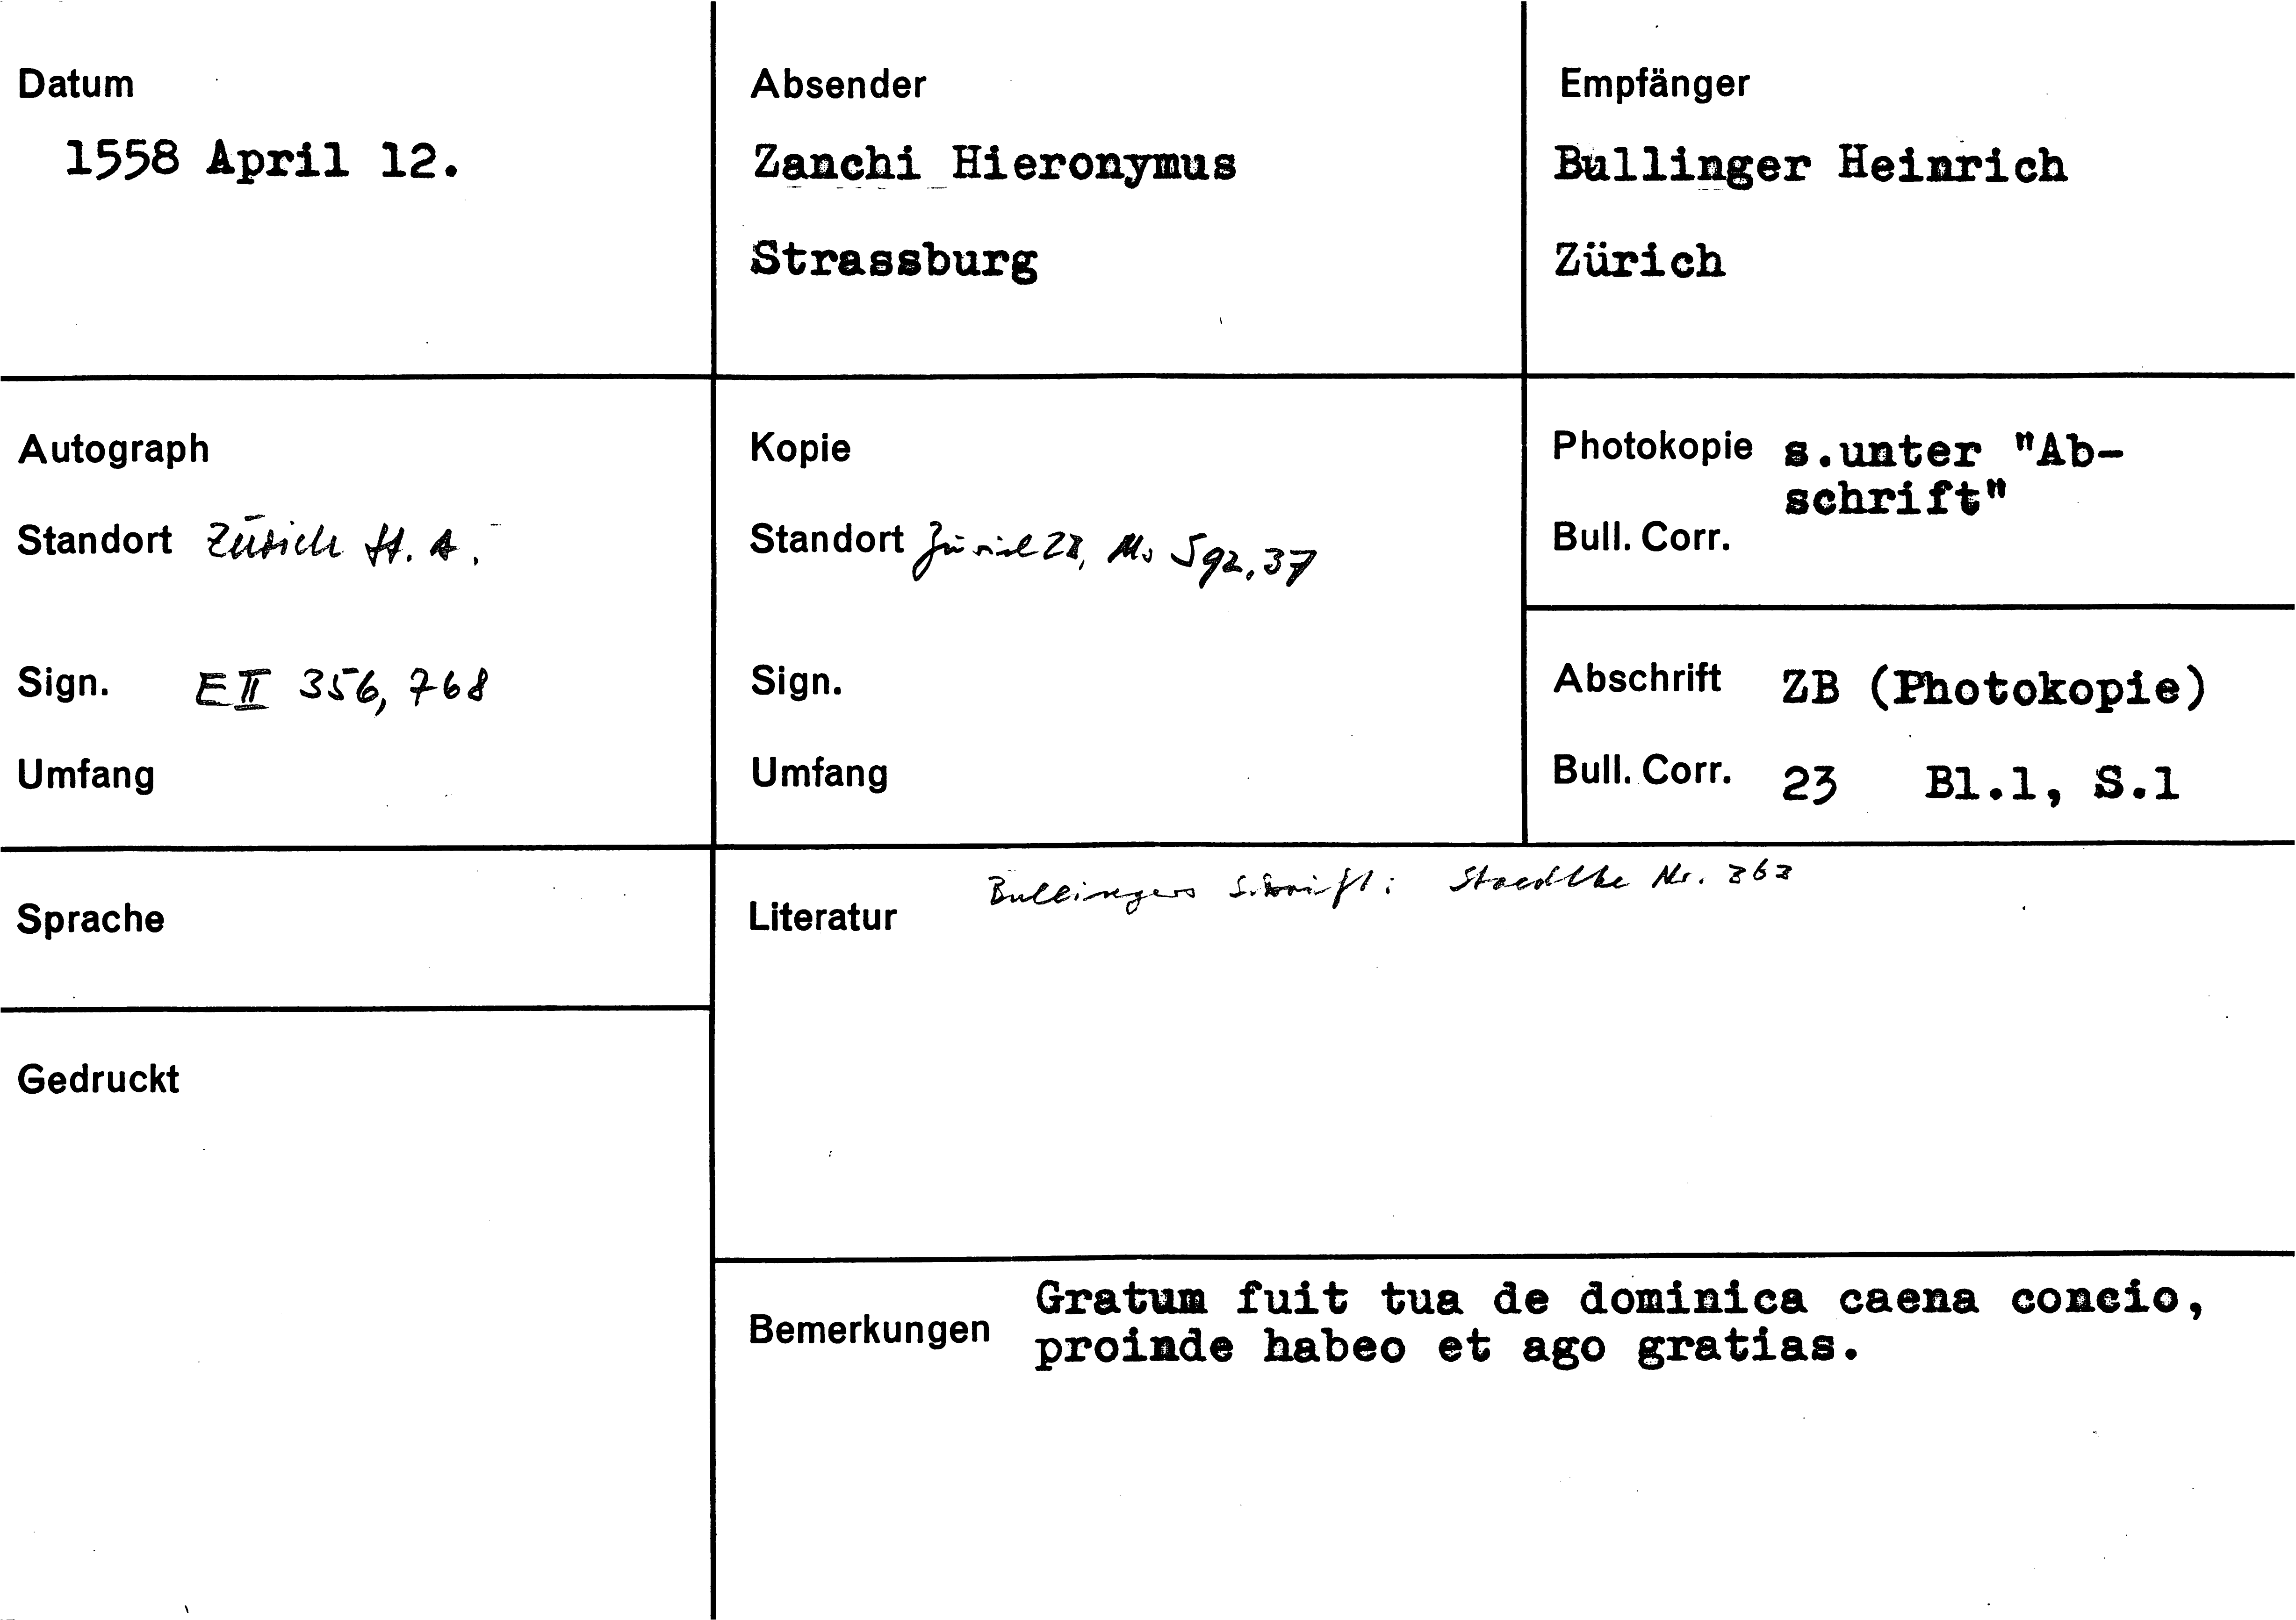 Datum
1558 April 12.
Absender
Zanchi Hieronymus
Strassburg
Empfänger
Bullinger Heinrich
Zürich
Autograph
Standort Zürich St. A.
Sign. E II 356, 768
Umfang
Kopie
Standort Zürich ZB, Ms S 92, 37
Sign.
Umfang
Photokopie s.unter "Ab-
schrift"
Bull. Corr.
Abschrift ZB (Photokopie)
Bull. Corr. 23 Bl.1, S.1
Sprache
Gedruckt
Literatur Bullingers Schrift: Staedtke Nr.
Bemerkungen Gratum fuit tua de dominica caena concio,
proinde habeo et ago gratias.